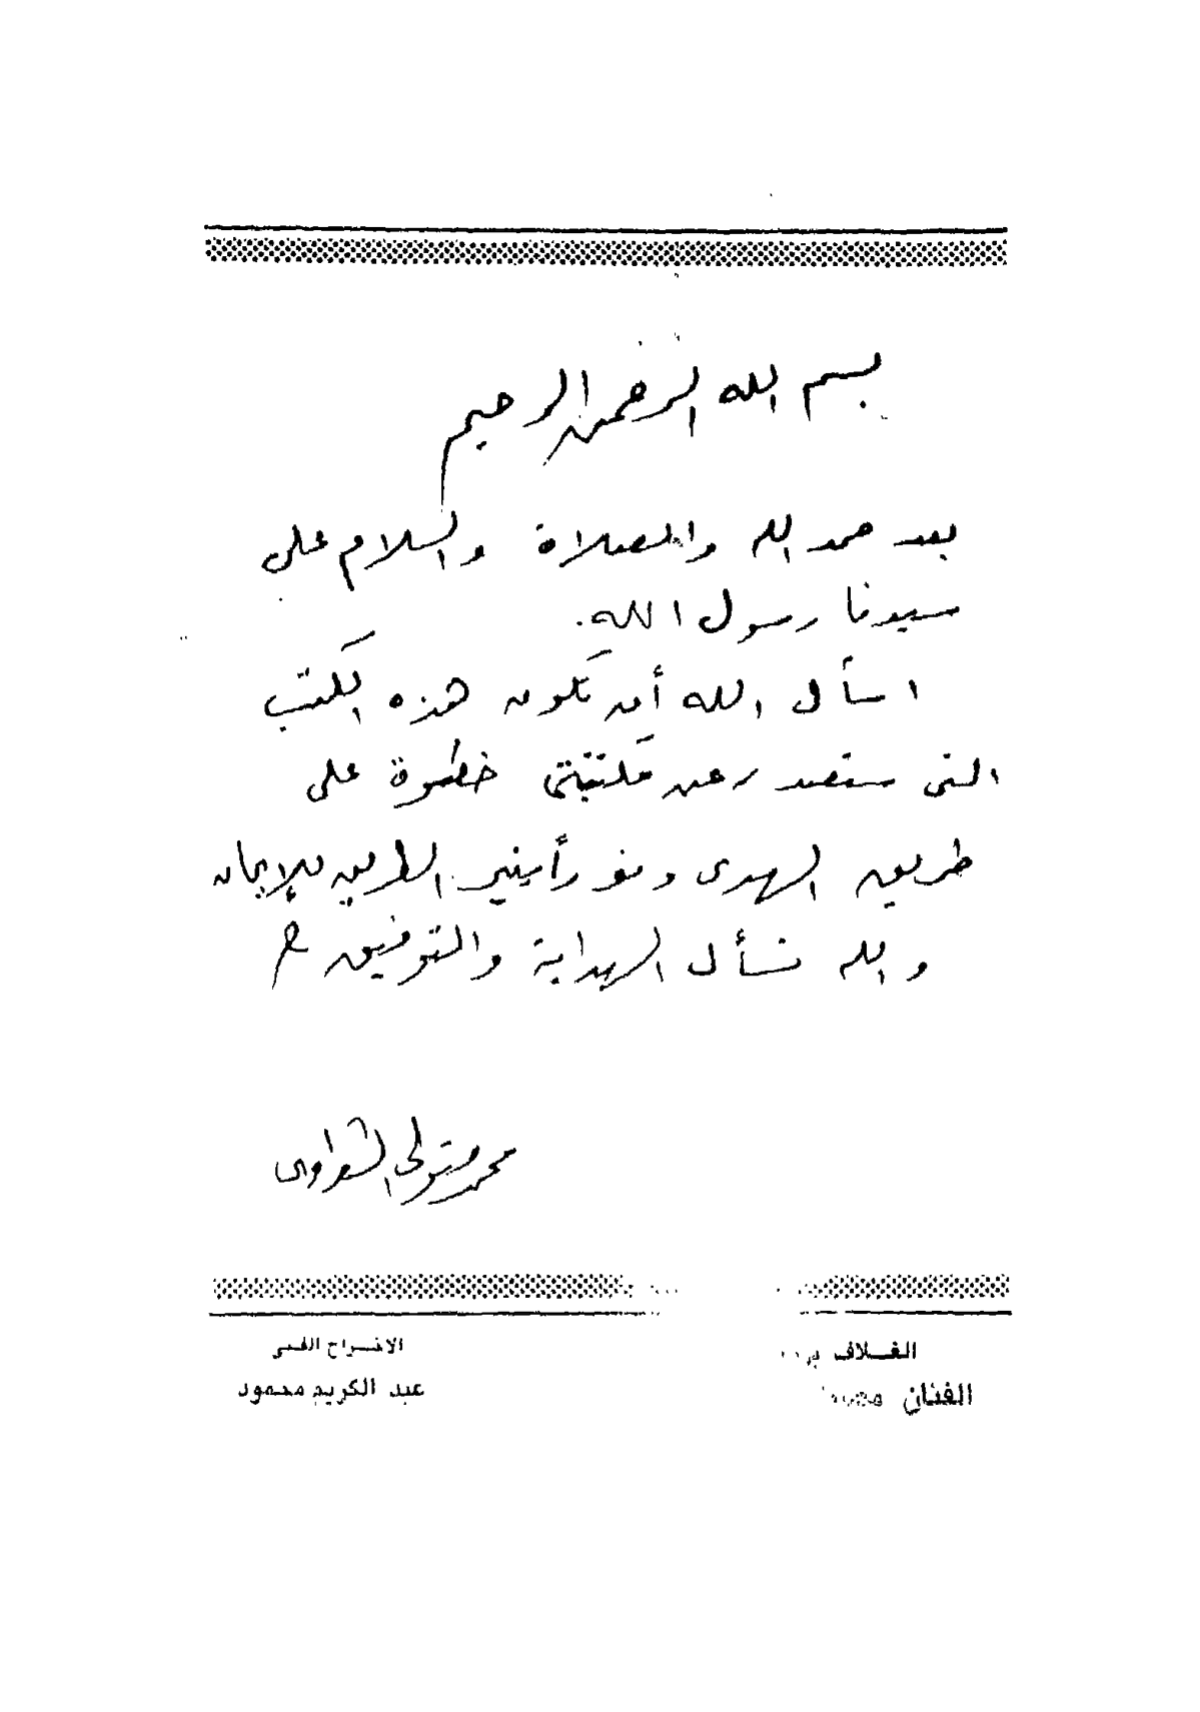 بسم الله الرحمن الرحيم
بعد حمد الله والصلاة والسلام على
سيدنا رسول الله.
اسأل الله أن تكون هذه الكتب
التى ستصدر عن مكتبتى خطوة على
طريق الهدى ونوراً ينير الطريق للإيمان
والله نسأل الهداية والتوفيق
محمد متولى الشعراوى
الغلاف
الفنان
الاخراج الفنى
عبد الكريم محمود